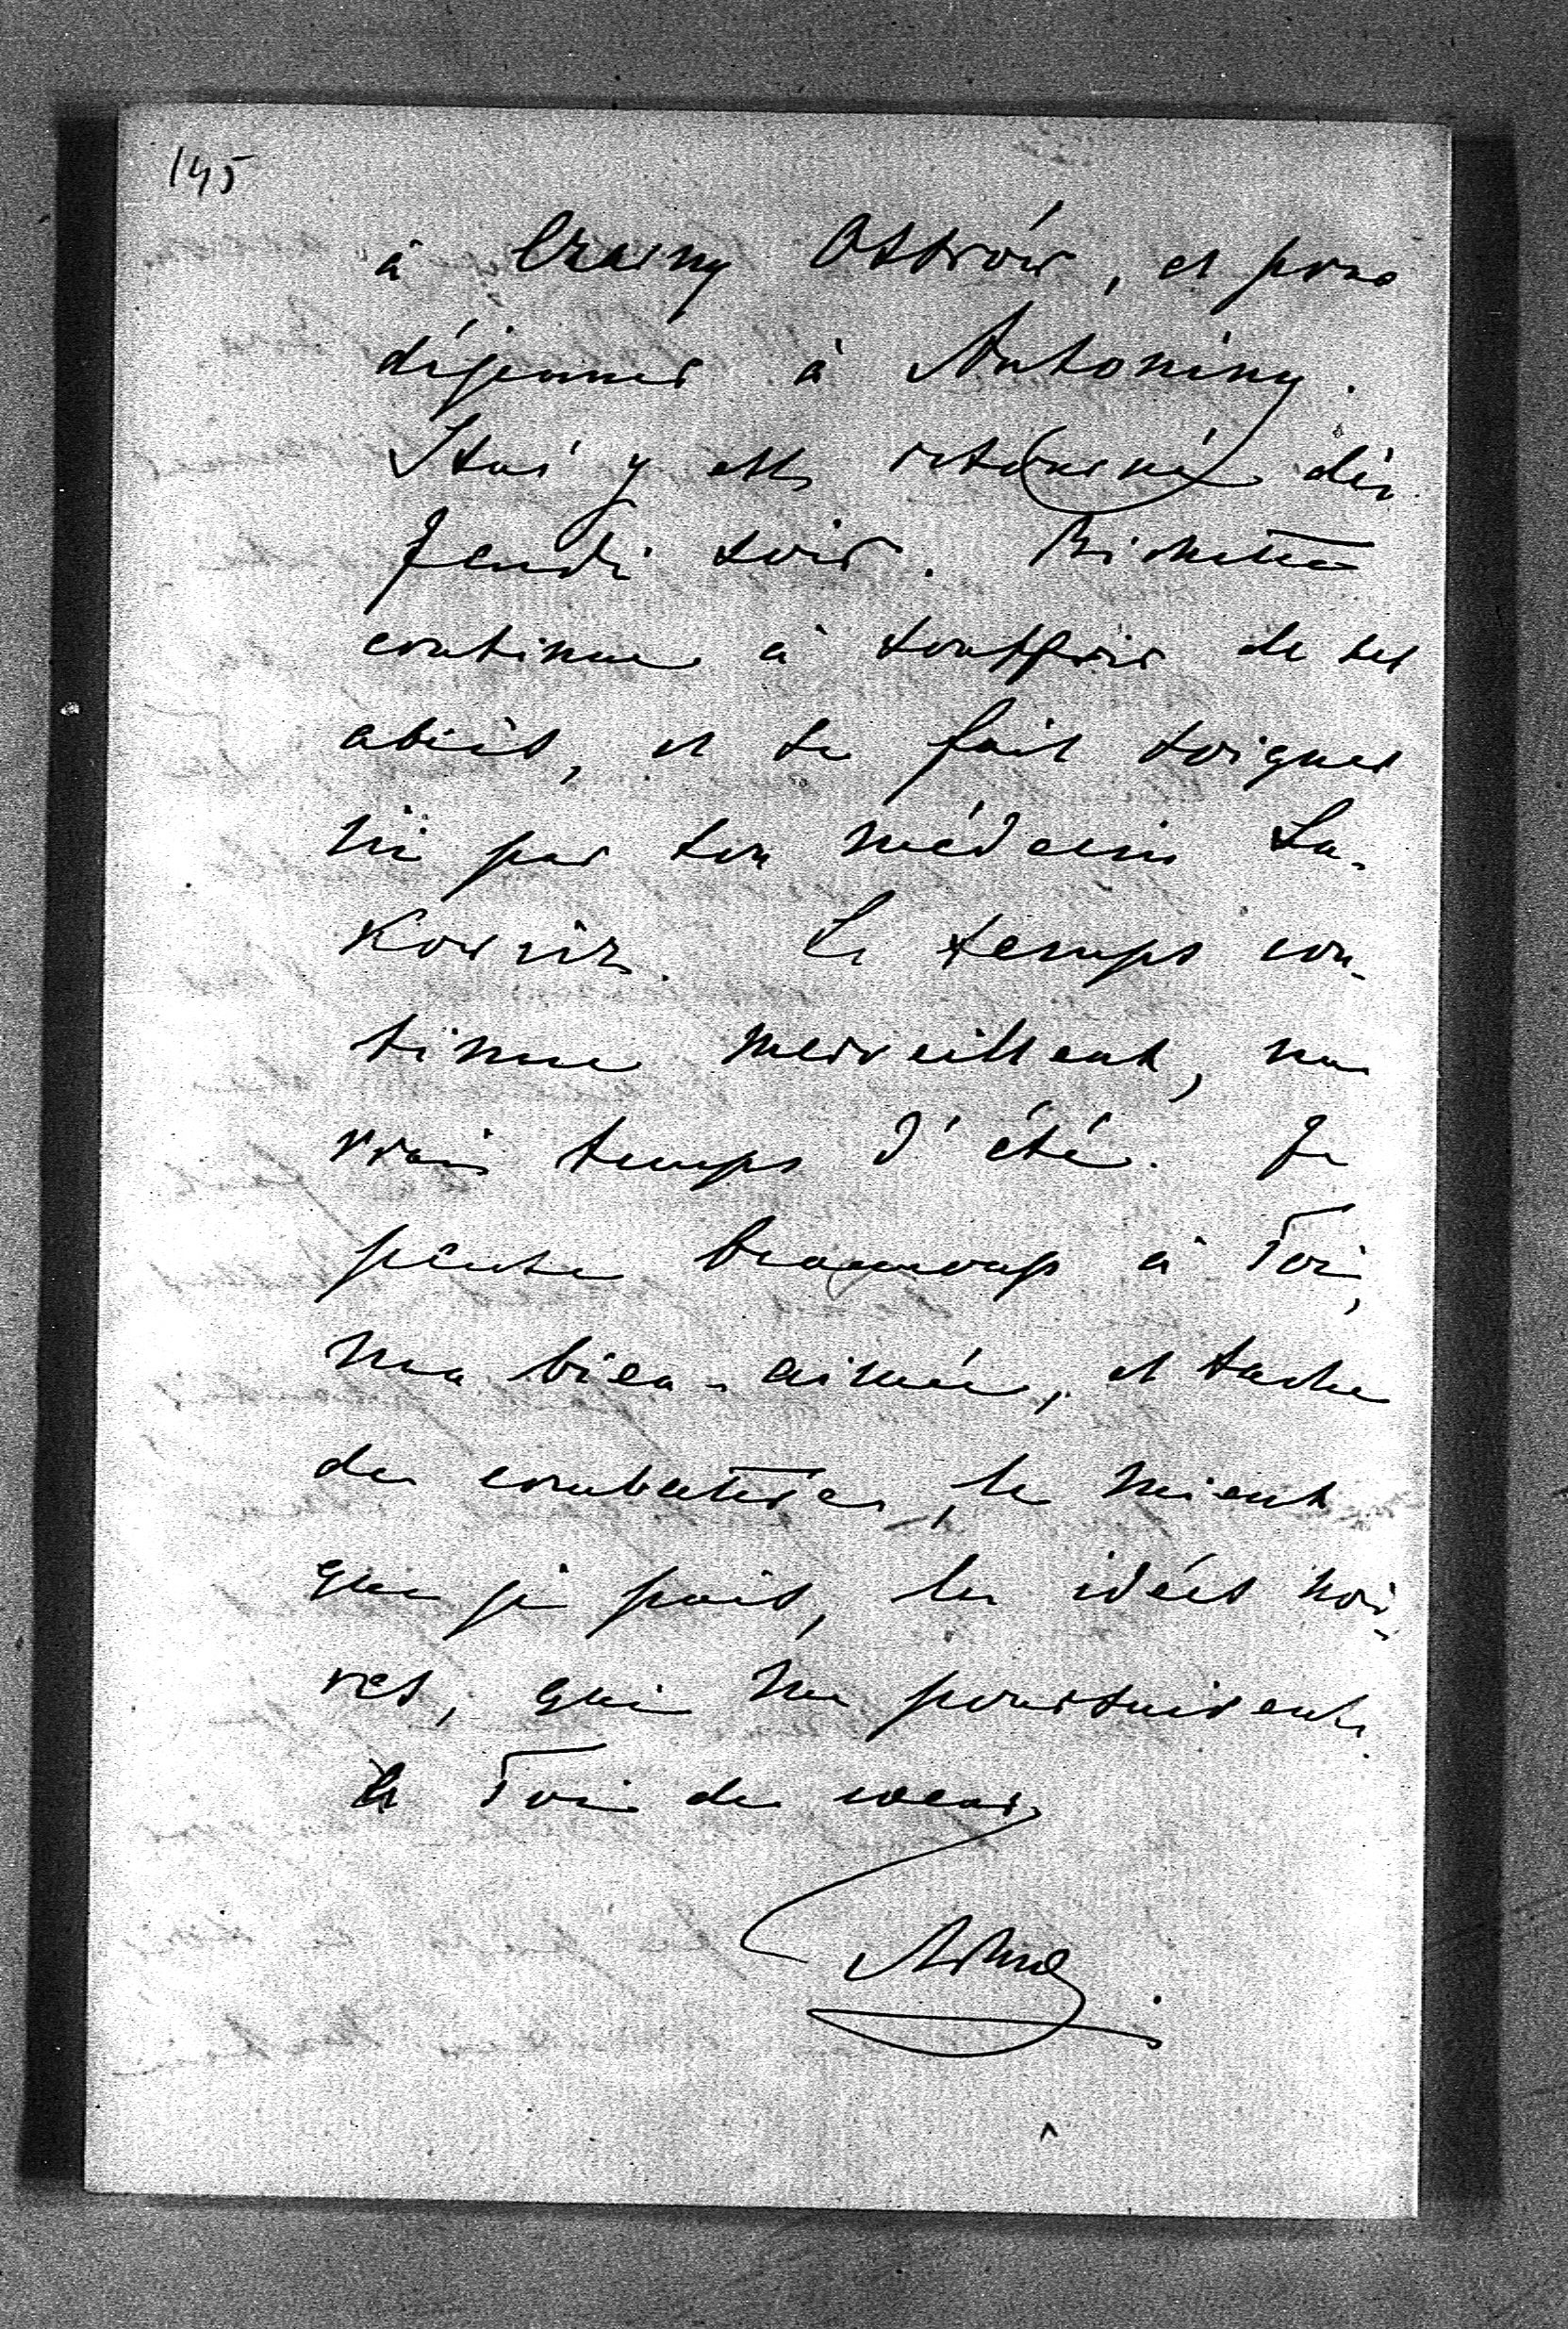 145
à Czarny Ostrów, et pour
déjeuner à Antoniny.
Staś y est retourné dès
Jeudi soir. Bichette
continue à souffrir de ses
abcès, et se fait soigner
ici par son médecin Sa-
kowicz. Le temps con-
tinue merveilleux, un
vrai temps d'été. Je
pense beaucoup à Toi,
ma bien-aimée, et tache
de combattre, le mieux
que je puis, les idées noi-
res, qui me poursuivent.
à Toi de cœur